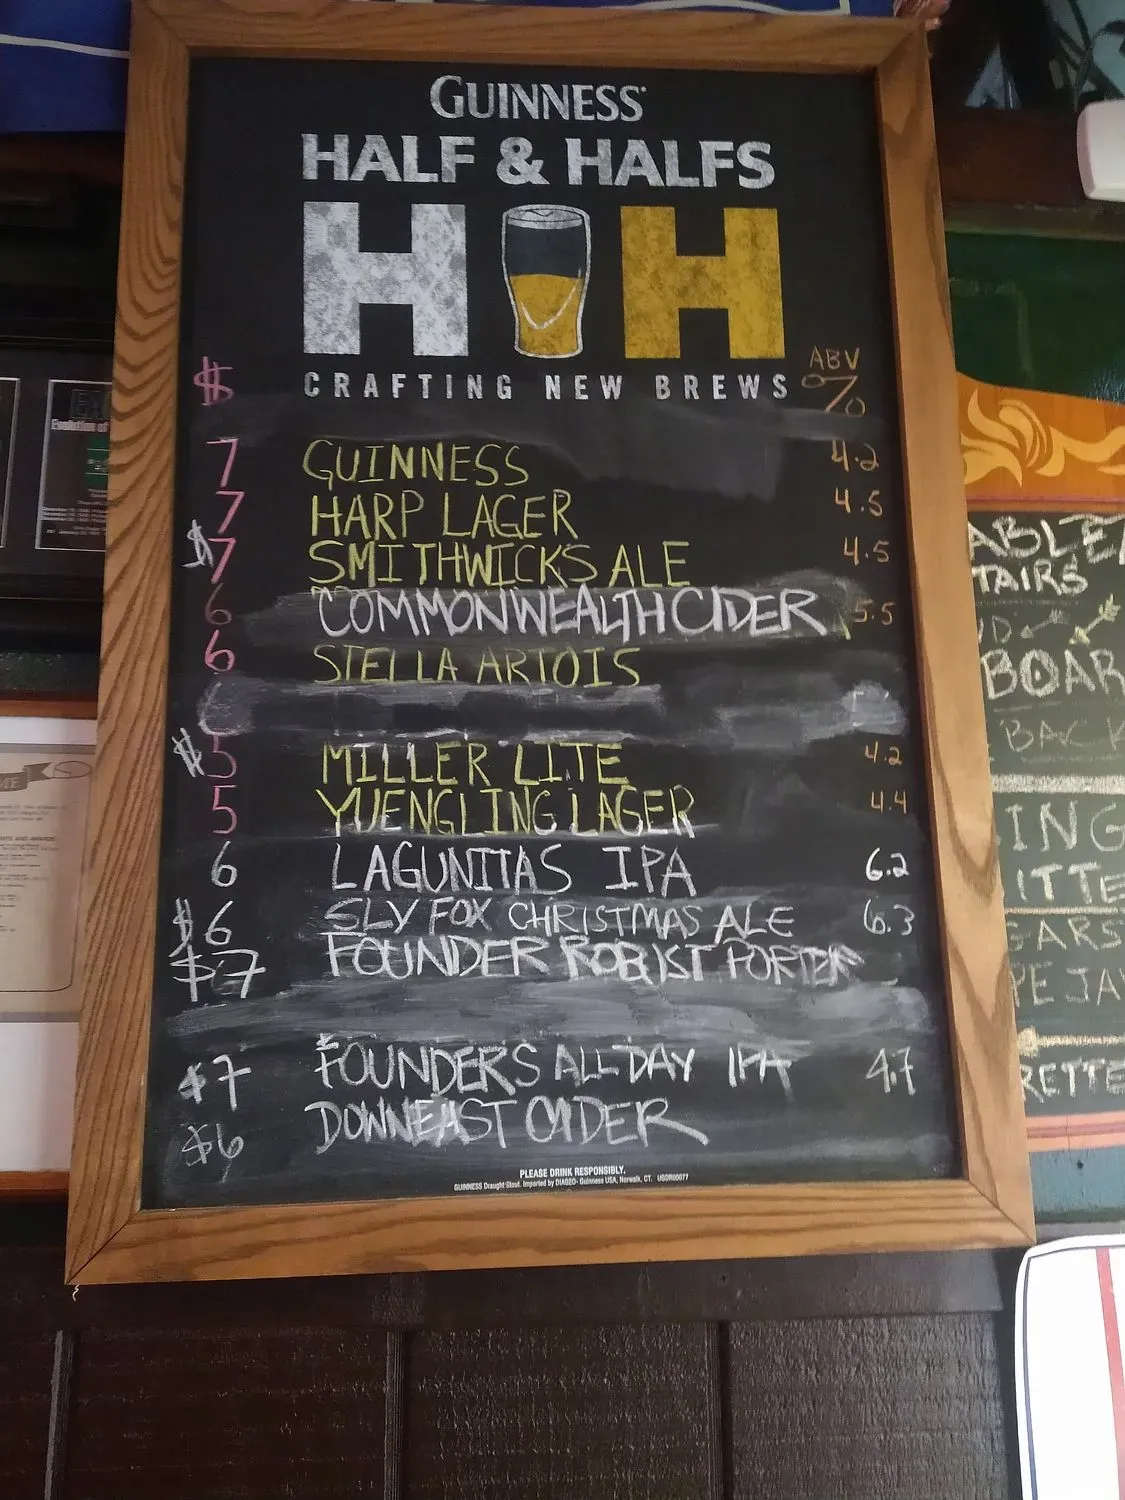 GUINNESS
HALF & HALFS
H H
CRAFTING NEW BREWS
$ ABV %
7 GUINNESS 4.2
7 HARP LAGER 4.5
$7 SMITHWICKS ALE 4.5
6 COMMONWEALTH CIDER 5.5
6 STELLA ARTOIS
$5 MILLER LITE 4.2
5 YUENGLING LAGER 4.4
6 LAGUNITAS IPA 6.2
$6 SLY FOX CHRISTMAS ALE 6.3
$7 FOUNDER ROBUST PORTER
$7 FOUNDERS ALL DAY IPA 4.7
$6 DOWNEAST CIDER
PLEASE DRINK RESPONSIBLY.
GUINNESS Draught Stout. Imported by DIAGEO- Guinness USA, Norwalk, CT. USGR00077
Evolution of
ABLE
TAIRS
BOAR
BACK
ING
ITTE
GARS
PE JA
RETTE